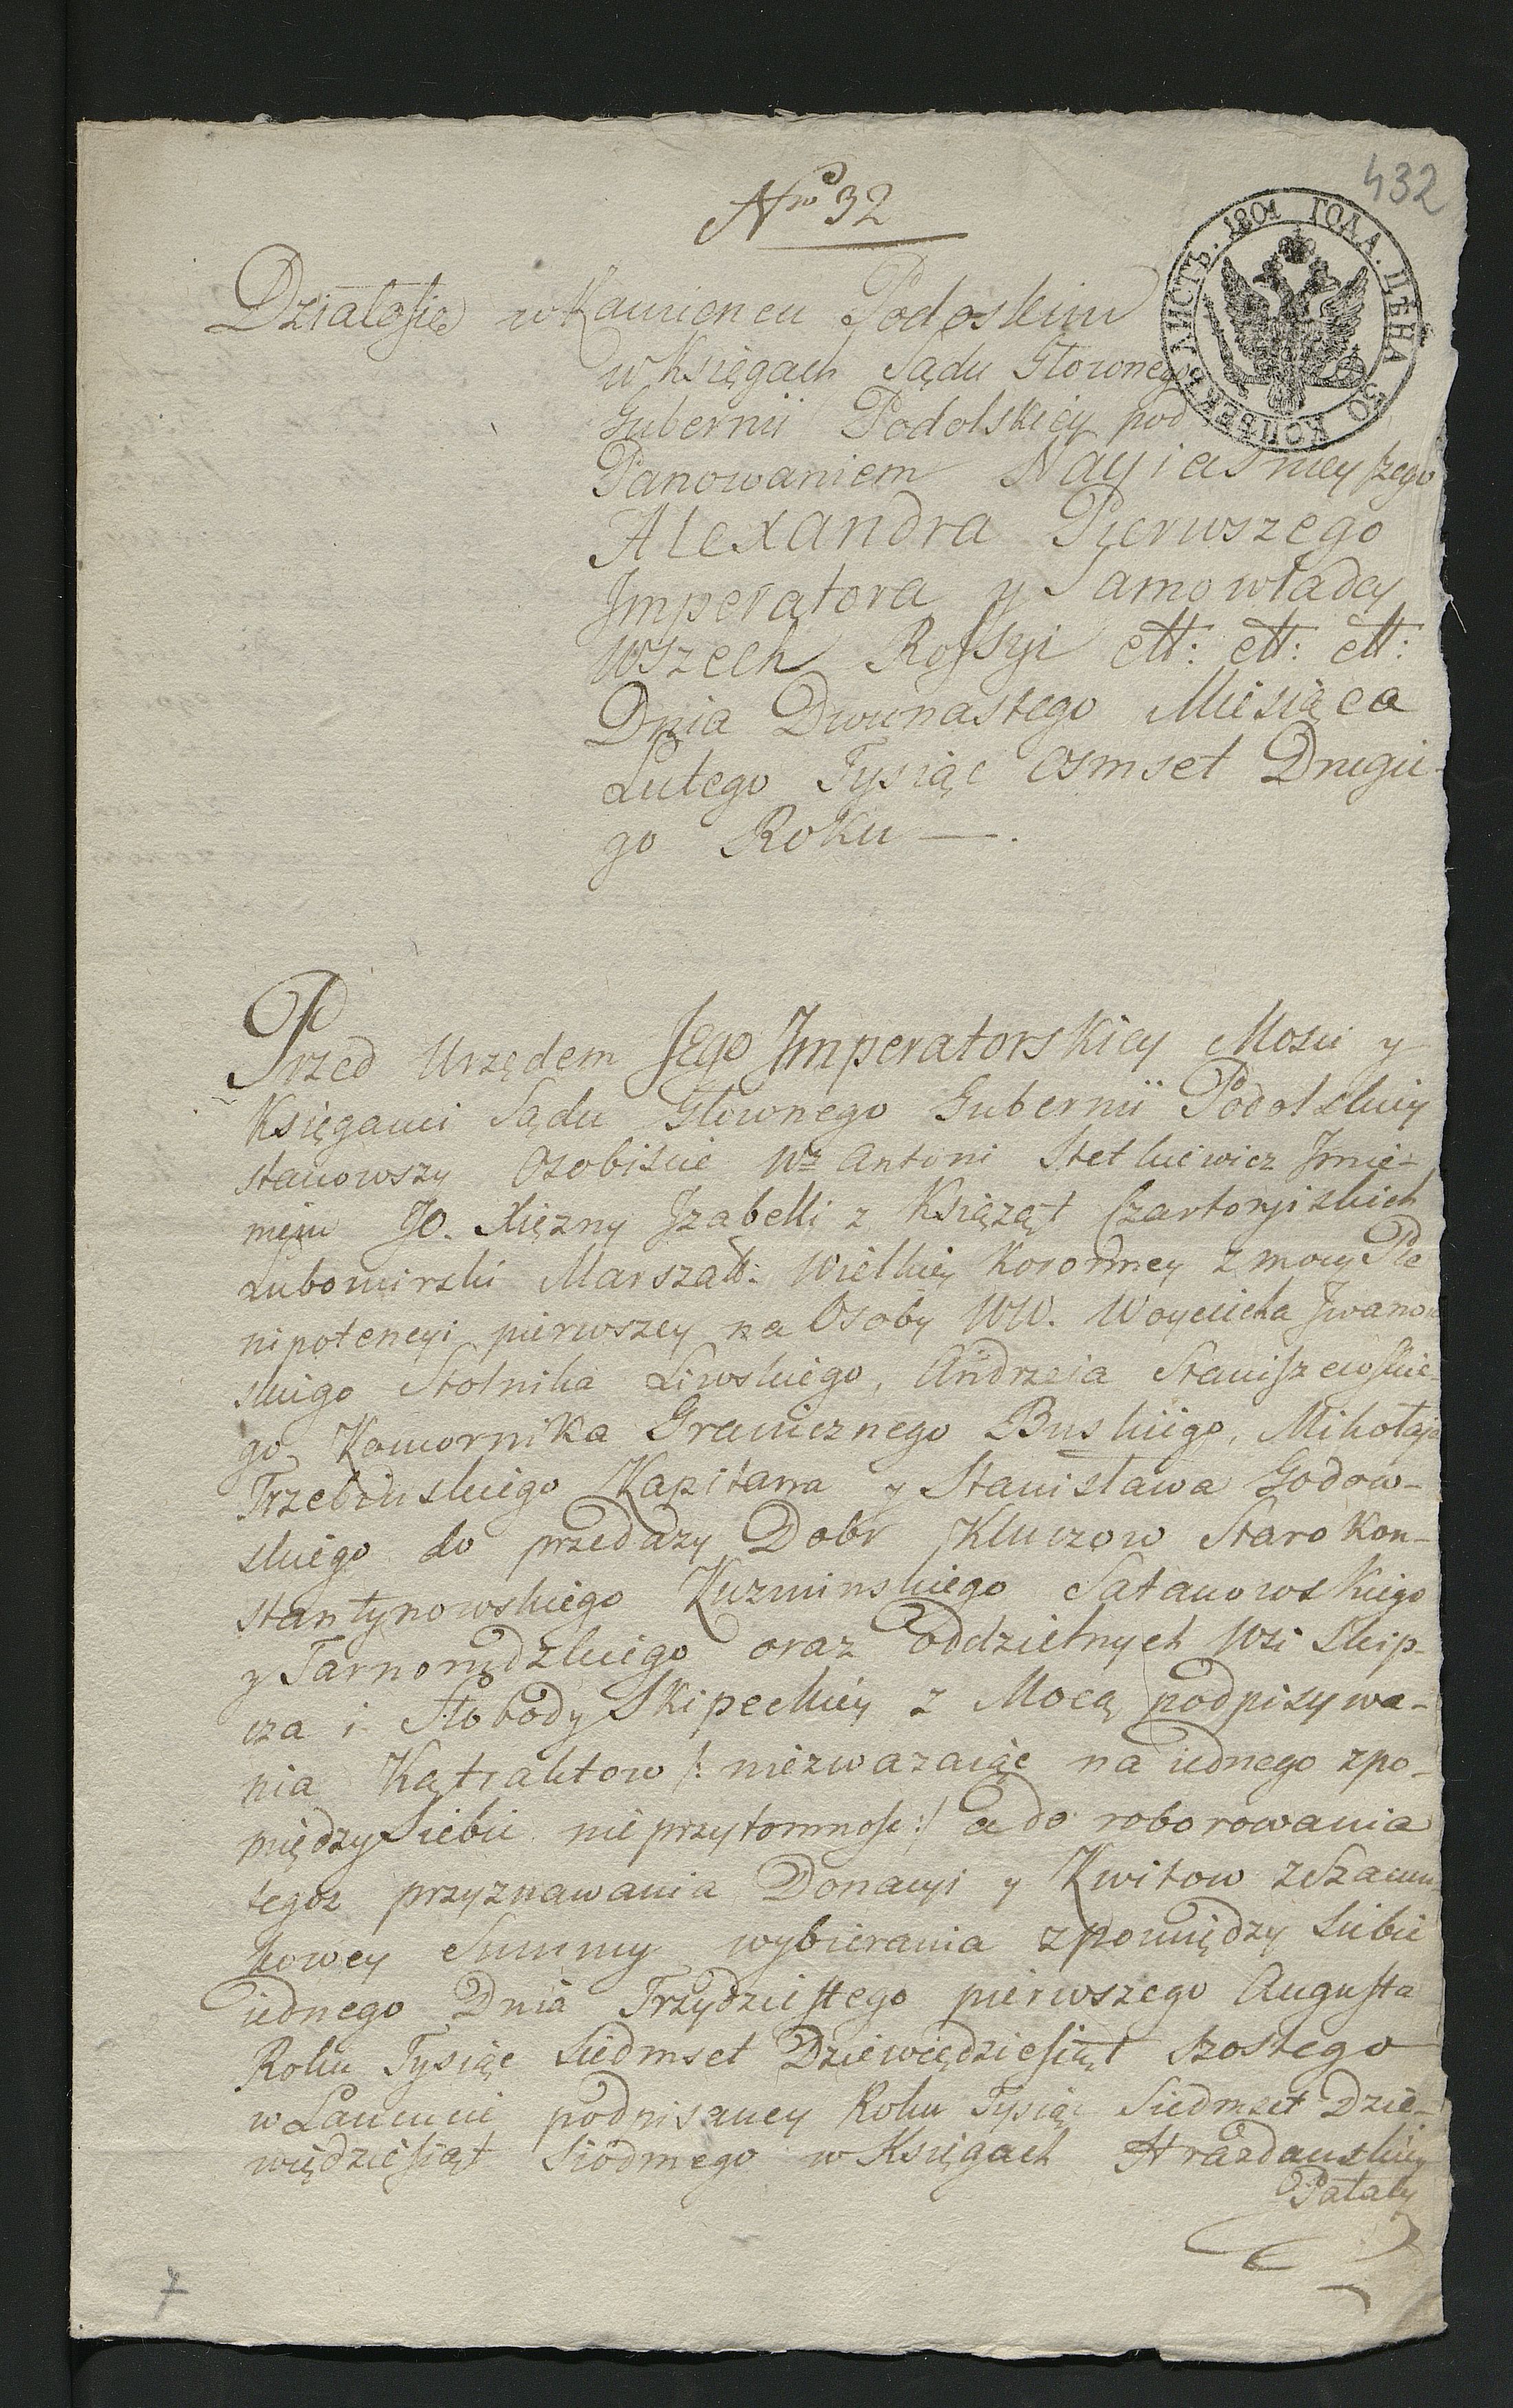 432
Nro 32
ЛИСТЪ. 1801 ГОДА. ЦѢНА 30 КОПѢЕКЪ
Działosię w Kamiencu Podoskim
w Księgach Sądu Głownego
Gubernii Podolskiey pod
Panowaniem Nayiasnieyszego
Alexandra Pierwszego
Jmperatora y Samowładcy
Wszech Rossyi ett: ett: ett:
Dnia Dwunastego Miesiąca
Lutego Tysiąc Osmset Drugie-
go Roku —.
Przed Urzędem Jego Jmperatorskiey Mosci y
Księgami Sądu Głownego Gubernii Podolskiey
stanowszy Osobiscie Wż Antoni Stetkiewicz Jmie-
niem JO. Xięzny Jzabelli z Książąt Czartoryiskich
Lubomirski Marszałk: Wielkiey Koronney z mocy Ple
nipotencyi pierwszey na Osoby WW. Woyciecha Jwanow
skiego Stolnika Liwskiego, Andrzeia Staniszewskie
go Komornika Granicznego Buskiego, Mikołaja
Trzebinskiego Kapitana y Stanisława Godow-
skiego do przedazy Dobr Kluczow Staro Kon-
stantynowskiego Kuzminskiego Satanowskiego
y Tarnorudzkiego oraz oddzielnych Wsi Skip-
cza i Słobody Skipeckiey z Mocą podpisywa-
nia Kątraktow /: niezwazaiąc na iednego zpo-
między Siebie nieprzytomnosc :/ a do roborowania
tegoz przyznawania Donacyi y Kwitow z Szacun
kowey Summy wybierania zpomiędzy Siebie
iednego Dnia Trzydziestego pierwszego Augusta
Roku Tysiąc Siedmset Dziewięćdziesiąt szostego
w Lancucie podpisaney Roku Tysiąc Siedmset Dzie-
więdziesiąt Siodmego w Księgach Hrazdanskiey
Pałaty